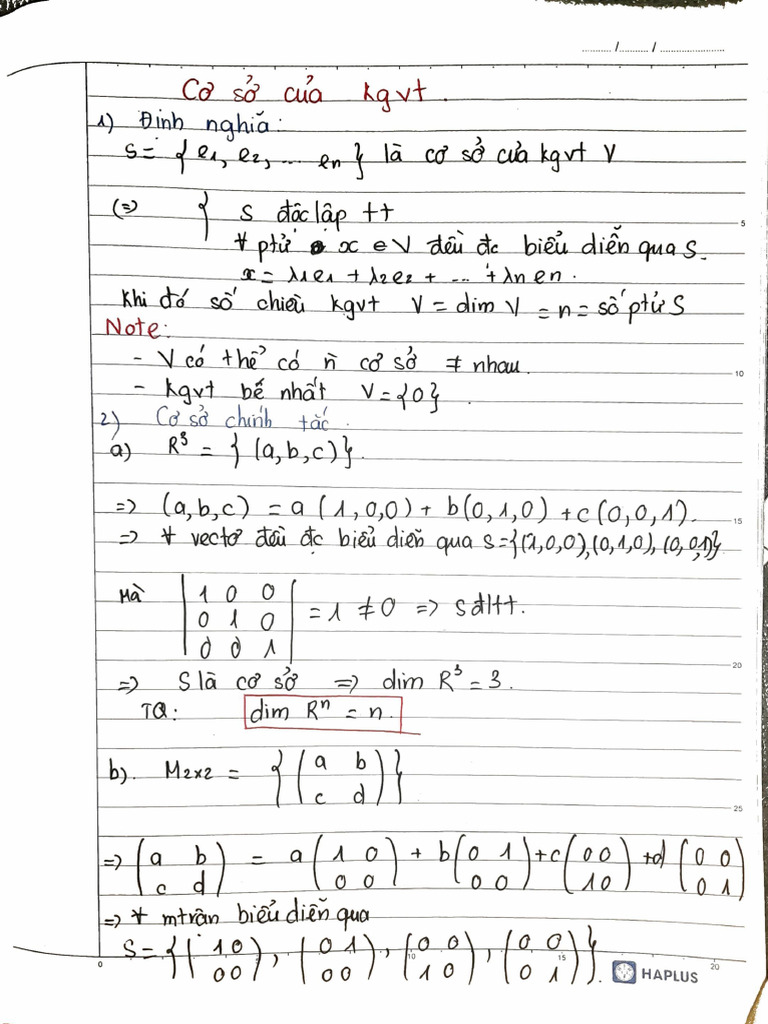 ........... / ........... / ........................
Cơ sở của kgvt.
1) Định nghĩa:
S = { e1, e2, ... en } là cơ sở của kgvt V
(=> { S độc lập tt
∀ ptử x ∈ V đều đc biểu diễn qua S.
x = λ1e1 + λ2e2 + ... + λn en.
Khi đó số chiều kgvt V = dim V = n = số ptử S
Note:
- V có thể có n̄ cơ sở ≠ nhau.
- kgvt bé nhất V = {0}.
2) Cơ sở chính tắc.
a) R³ = { (a,b,c) }.
=> (a,b,c) = a (1,0,0) + b(0,1,0) + c(0,0,1).
=> ∀ vectơ đều đc biểu diễn qua S = {(1,0,0),(0,1,0),(0,0,1)}
Mà | 1 0 0
0 1 0
0 0 1 | = 1 ≠ 0 => S đltt.
=> S là cơ sở => dim R³ = 3.
TQ: dim Rⁿ = n.
b). M2x2 = { ( a b
c d ) }
=> ( a b
c d ) = a ( 1 0
0 0 ) + b ( 0 1
0 0 ) + c ( 0 0
1 0 ) + d ( 0 0
0 1
=> ∀ mtrận biểu diễn qua
S = { ( 1 0
0 0 ), ( 0 1
0 0 ), ( 0 0
1 0 ), ( 0 0
0 1 ) }.
HAPLUS
5
10
15
20
25
0
10
15
20